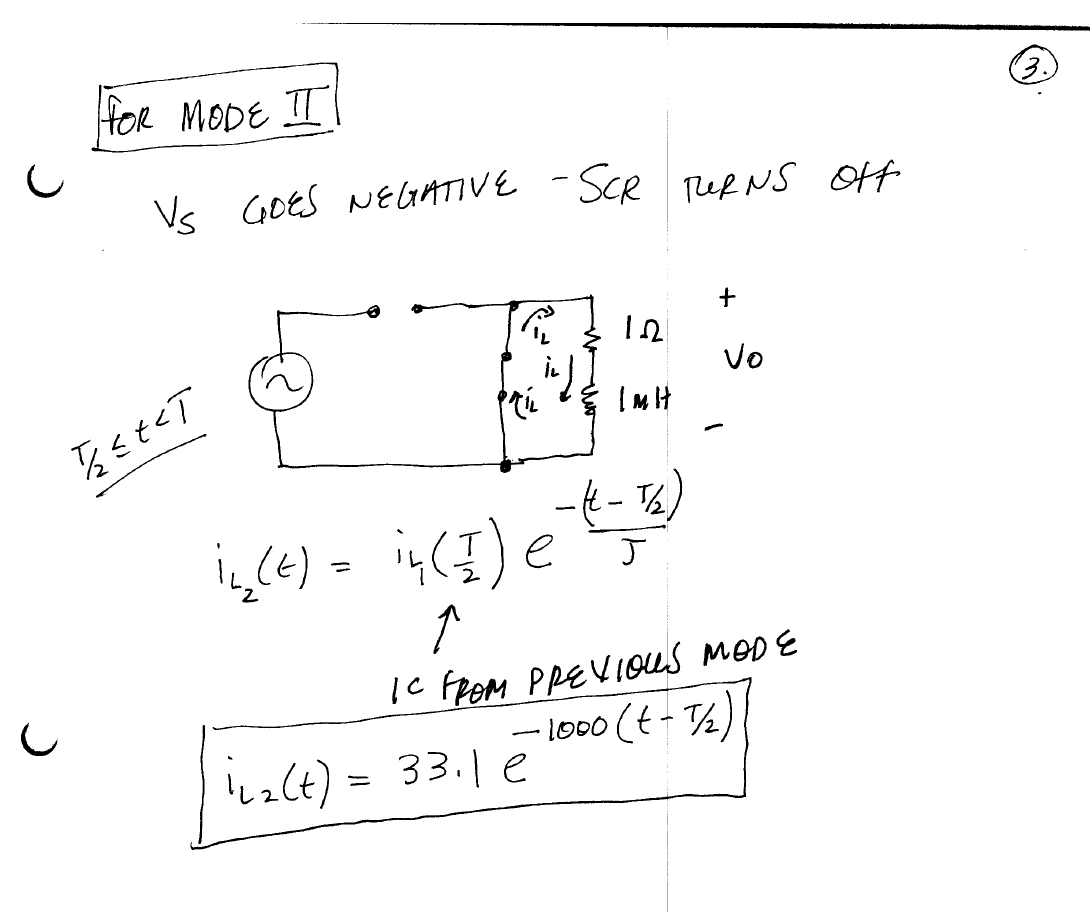 3.
FOR MODE II
VS GOES NEGATIVE - SCR TURNS OFF
+
iL
1Ω
iL
Vo
iL
1 mH
-
T/2 ≤ t < T
iL2(t) = iL1(T/2) e^-(t - T/2)/J
↑
IC FROM PREVIOUS MODE
iL2(t) = 33.1 e^-1000(t - T/2)